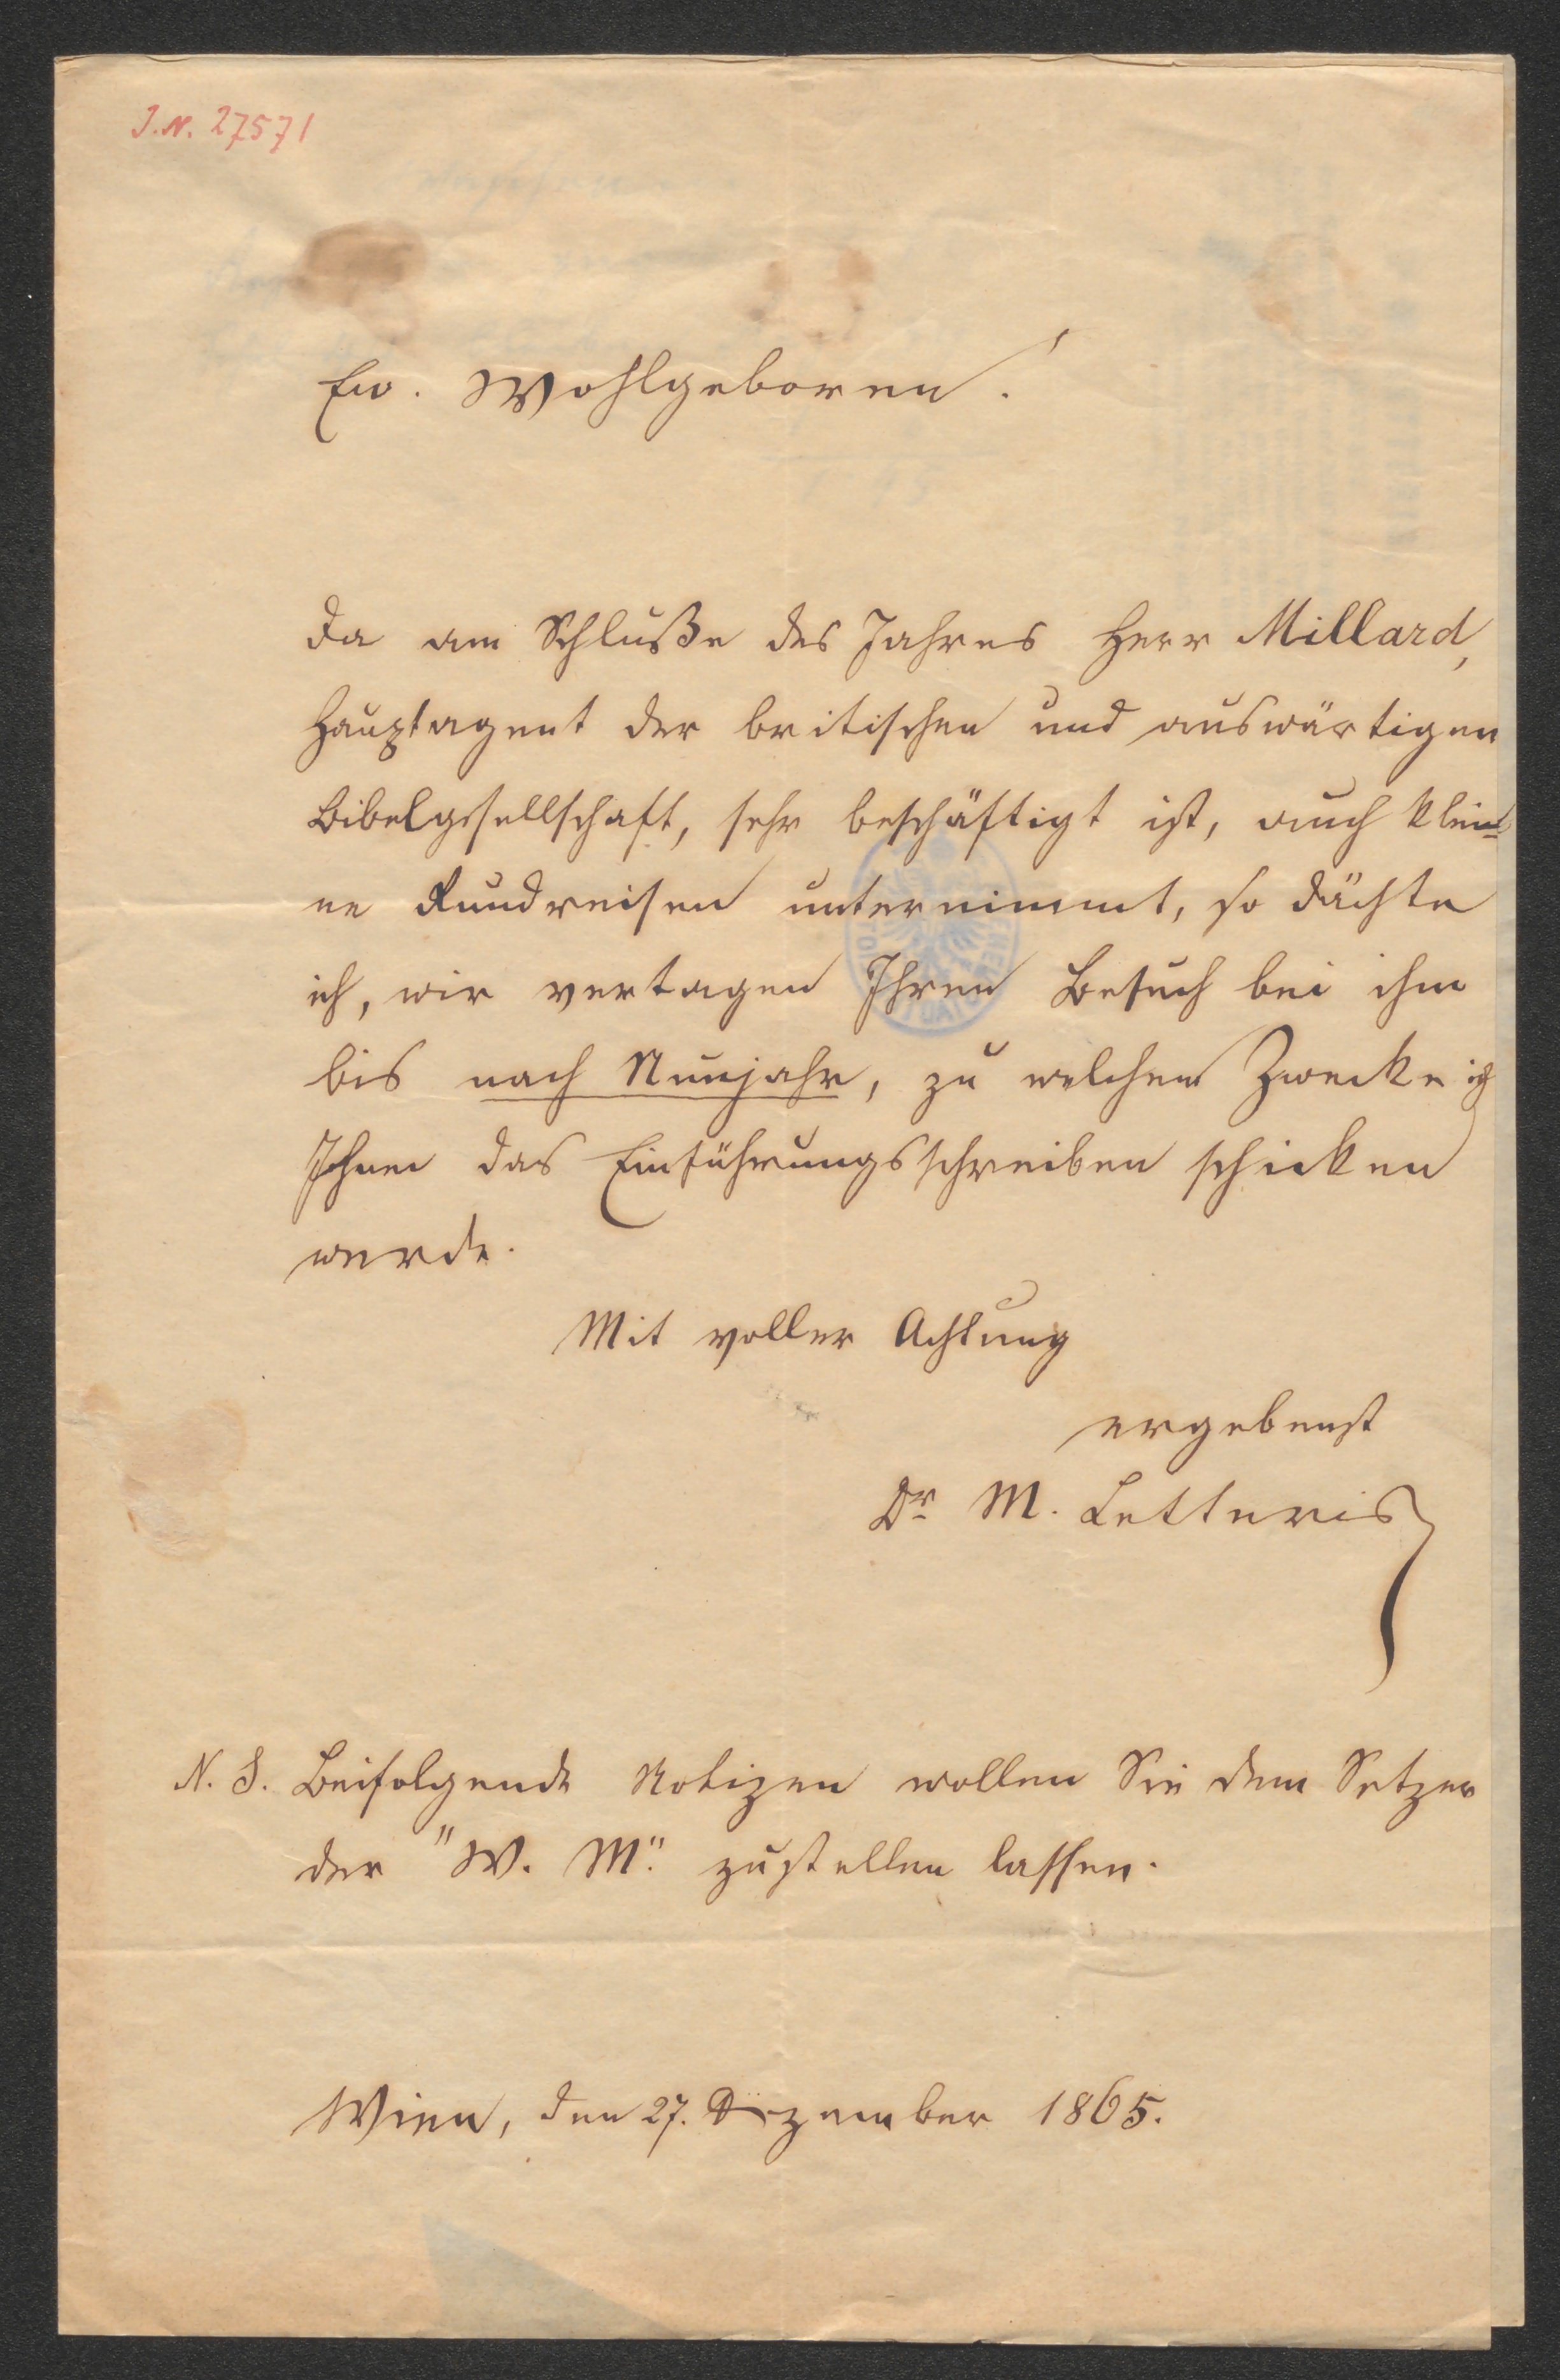 J.N. 27571
Ew. Wohlgeboren!
Da am Schluße des Jahres Herr Millard,
Hauptagent der britischen und auswärtigen
Bibelgesellschaft, sehr beschäftigt ist, auch klei=
ne Rundreisen unternimmt, so dächte
ich, wir vertagen Ihren Besuch bei ihm
bis nach Neujahr, zu welchem Zwecke ich
Ihnen das Einführungsschreiben schicken
werde.
Mit voller Achtung
ergebenst
Dr M. Letteris
N. S. Beifolgende Notizen wollen Sie dem Setzer
der "W. M." zustellen lassen.
Wien, den 27. Dezember 1865.